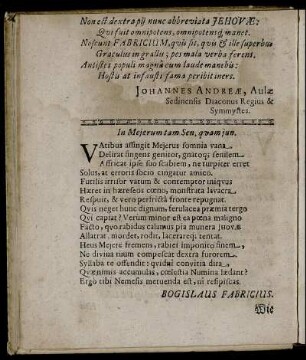 Non est dextra pij nunc abbreviata JEHOVÆ:
Qui fuit omnipotens, omnipotensq; manet.
Nescunt FABRICIUM, quis sit, quis & ille superbus
Graculus ingratus; pes mala verba ferens.
Antistes populi magnâ cum laude manebis:
Hostis at infausti fama peribit iners.
JOHANNES ANDREÆ, Aulæ
Sedinensis Diaconus Regius &
Symmystes.
In Mejerum tam Sen. quam jun.
VAtibus affingit Mejerus somnia vana
Delirat fingens genitor, gnatoq; senilem
Affricat ipse suo scabiem, ne turpiter erret
Solus, at erroris socio cingatur amico.
Futilis irrisor vatum & contemptor iniquus
Hæret in hæreseos cœno, monstrata lavacra
Respuit, & vero perfrictâ fronte repugnat.
Qvis neget hunc dignum, ferulacea præmia tergo
Qui capiat? Verum minor est ea pœna maligno
Facto, quo rabidus calamus pia munera JUOVÆ
Allatrat, mordet, rodit, lacerareq; tentat.
Heus Mejere fremens, rabiei imponito finem,
Ne divina tuum compescat dextra furorem.
Syllaba te offendit: quidni convitia dira
Quænimis accumulas, cœlestia Numina lædant?
Ergo tibi Nemesis metuenda est, ni resipiscas.
BOGISLAUS FABRICIUS.